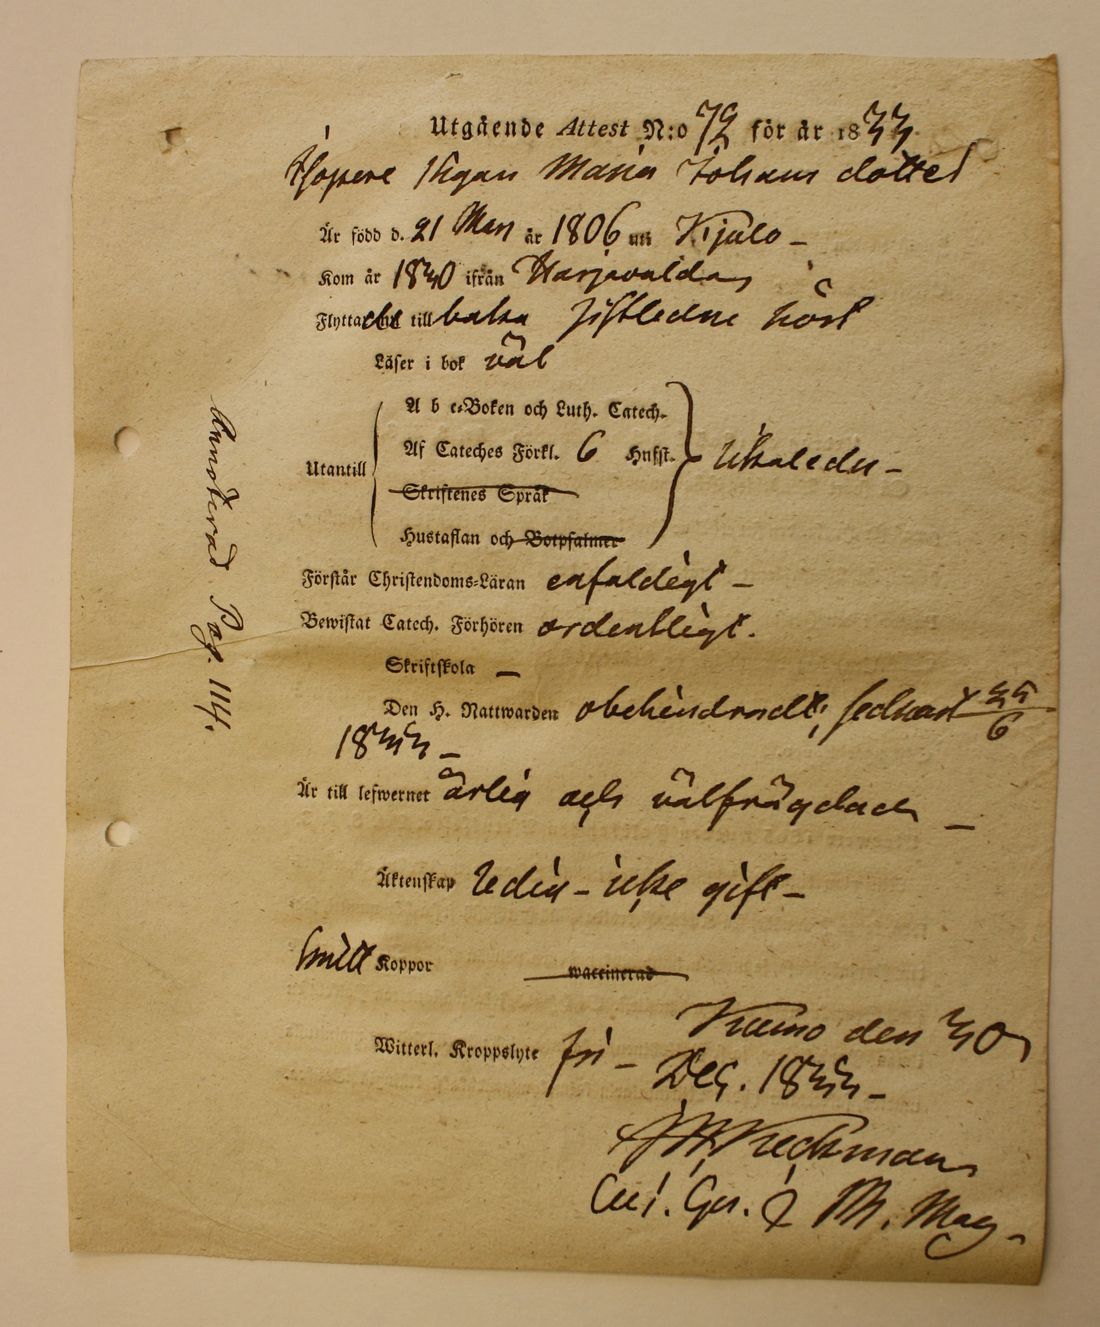 Utgående Attest N:o 72 för år 1833
Pigan Maria Johans dotter
Är född d. 21 Mars år 1806 uti Kjulo –
Kom år 1830 ifrån Harjavalda
Flyttar till baka sistledne höst
Läser i bok väl
A b c-Boken och Luth. Catech.
Utantill Af Cateches Förkl. 6 Hufst. –
Skriftenes Språk
Hustaflan och Botpsalmer
Förstår Christendoms-Läran enfaldigt –
Bewistat Catech. Förhören ordentligt.
Skriftskola –
Den H. Nattwarden obehindradt, sednast 23/6
1833 –
Är till lefwernet ärlig och välfrägdad –
Äktenskap Ledig – icke gift –
haft Koppor waccinerad
Witterl. Kroppslyte fri –
Kumo den 30
Dec. 1833 –
Past. Mag.
Annoterad Pag. 114.